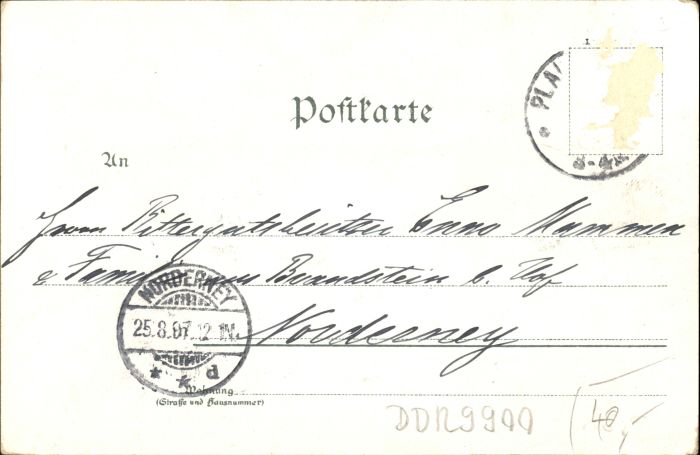 1
PLA
8-9
Postkarte
An
Herrn Rittergutsbesitzer Enno Mammen
& Familie aus Brandstein b. Hof
Norderney
NORDERNEY
25.8.97.12-1N.
* * d
Wohnung
(Straße und Hausnummer)
DDR9900
40,-